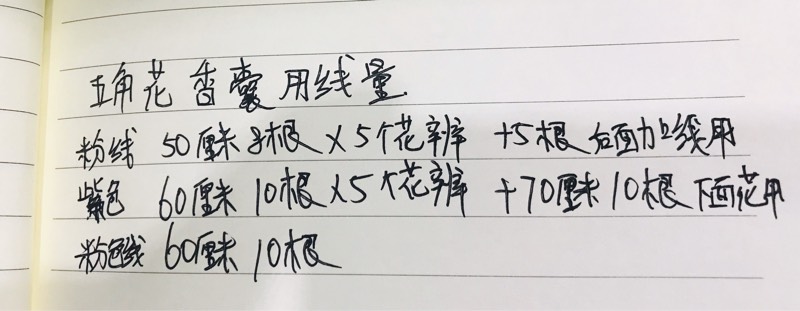 五角花香囊用线量
粉线 50厘米 8根 × 5个花辨 +5根 后面加线用
紫色 60厘米 10根 × 5个花辨 +70厘米 10根 下面花用
粉色线 60厘米 10根